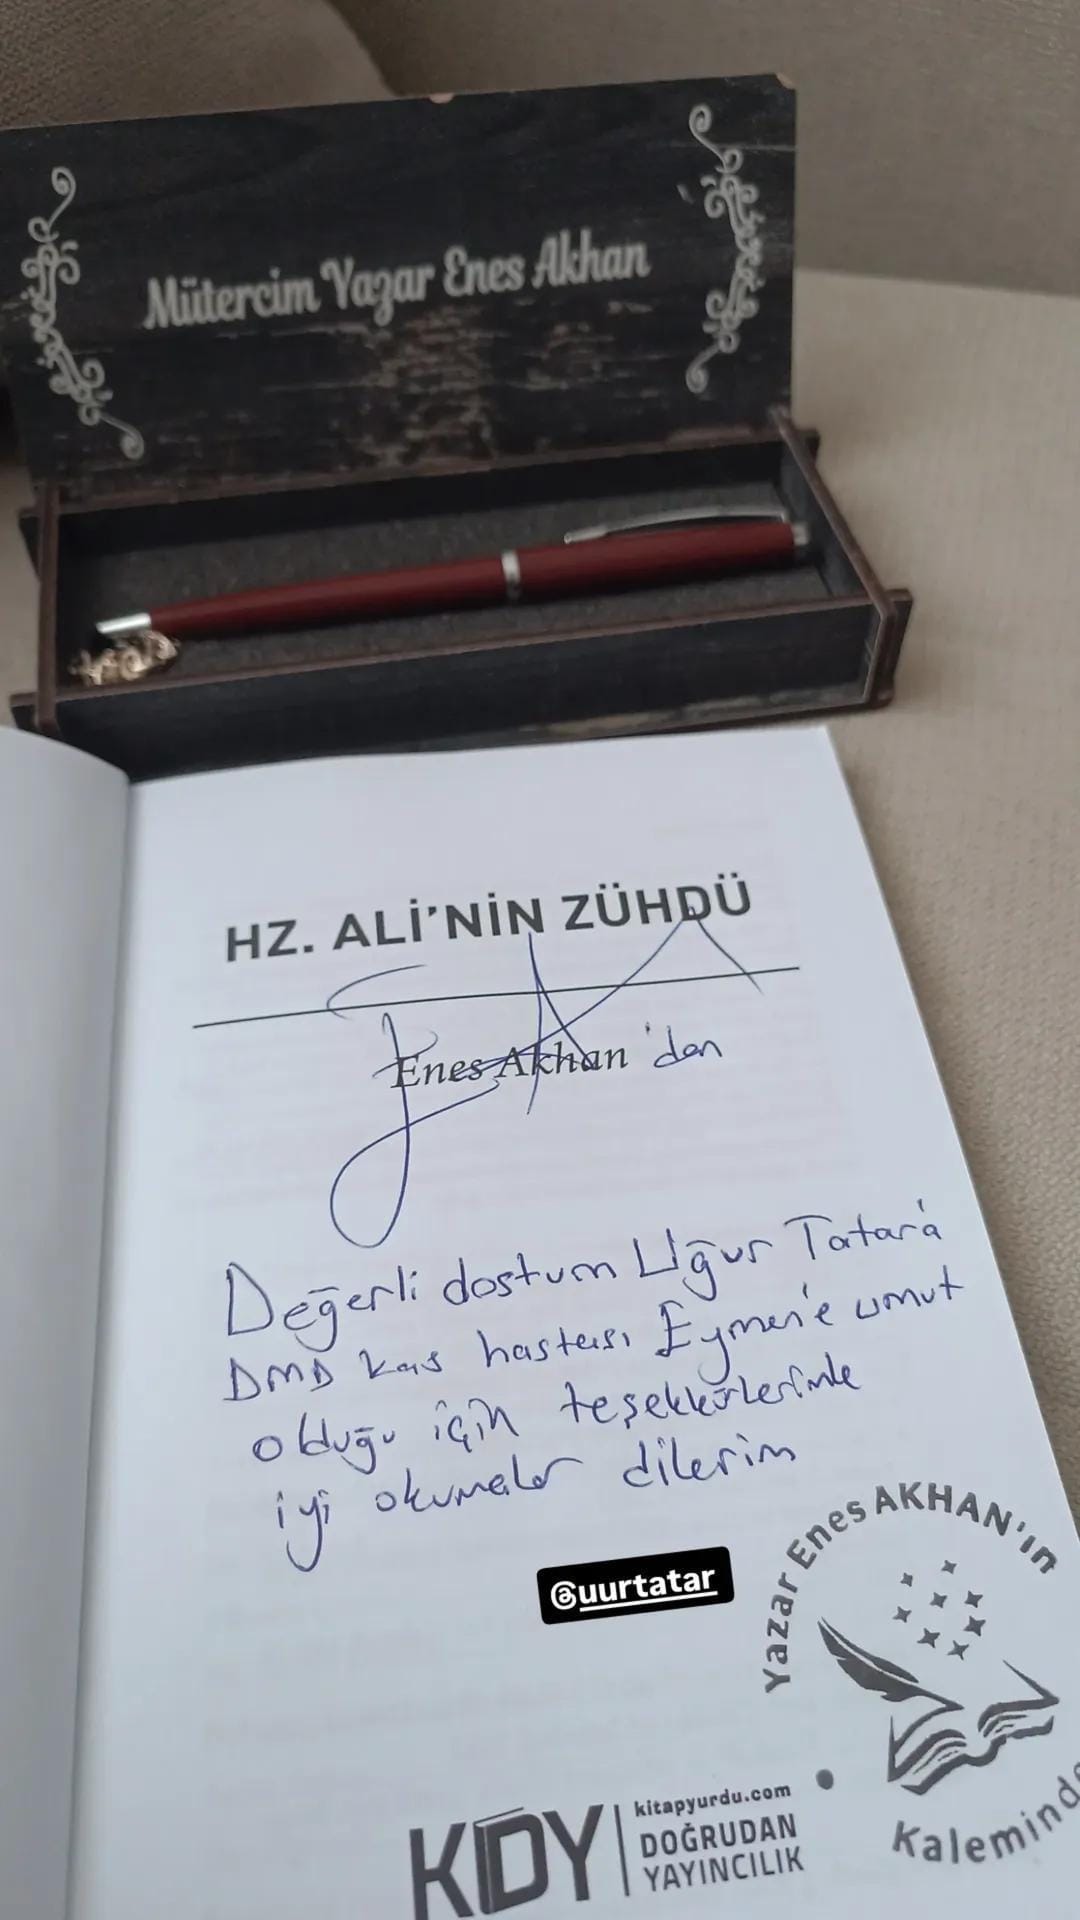 Mütercim Yazar Enes Akhan
HZ. ALİ'NİN ZÜHDÜ
Enes Akhan 'dan
Değerli dostum Uğur Tatar'a
DMD kas hastası Eymen'e umut
olduğu için teşekkürlerimle
iyi okumalar dilerim
@uurtatar
Yazar Enes AKHAN'ın
Kaleminde
KDY
kitapyurdu.com
DOĞRUDAN
YAYINCILIK